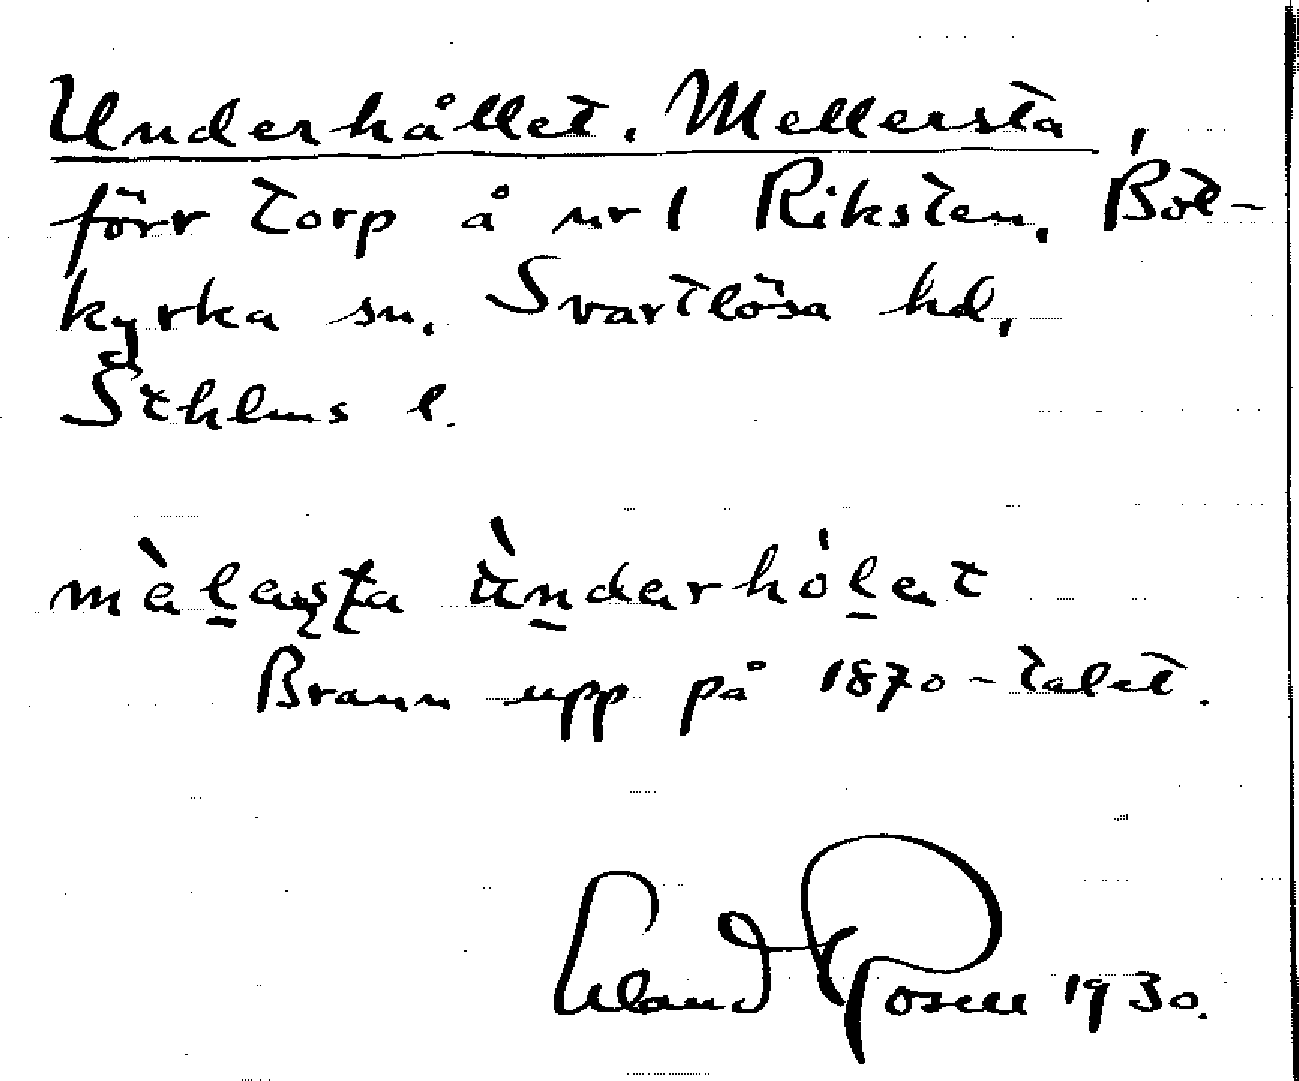 Underhållet. Mellersta,
förr torp å nr 1 Riksten, Bot-
kyrka sn. Svartlösa hd,
Sthlms l.
mèlasta ùndarhólat
Brann upp på 1870-talet.
Erland Rosell 1930.